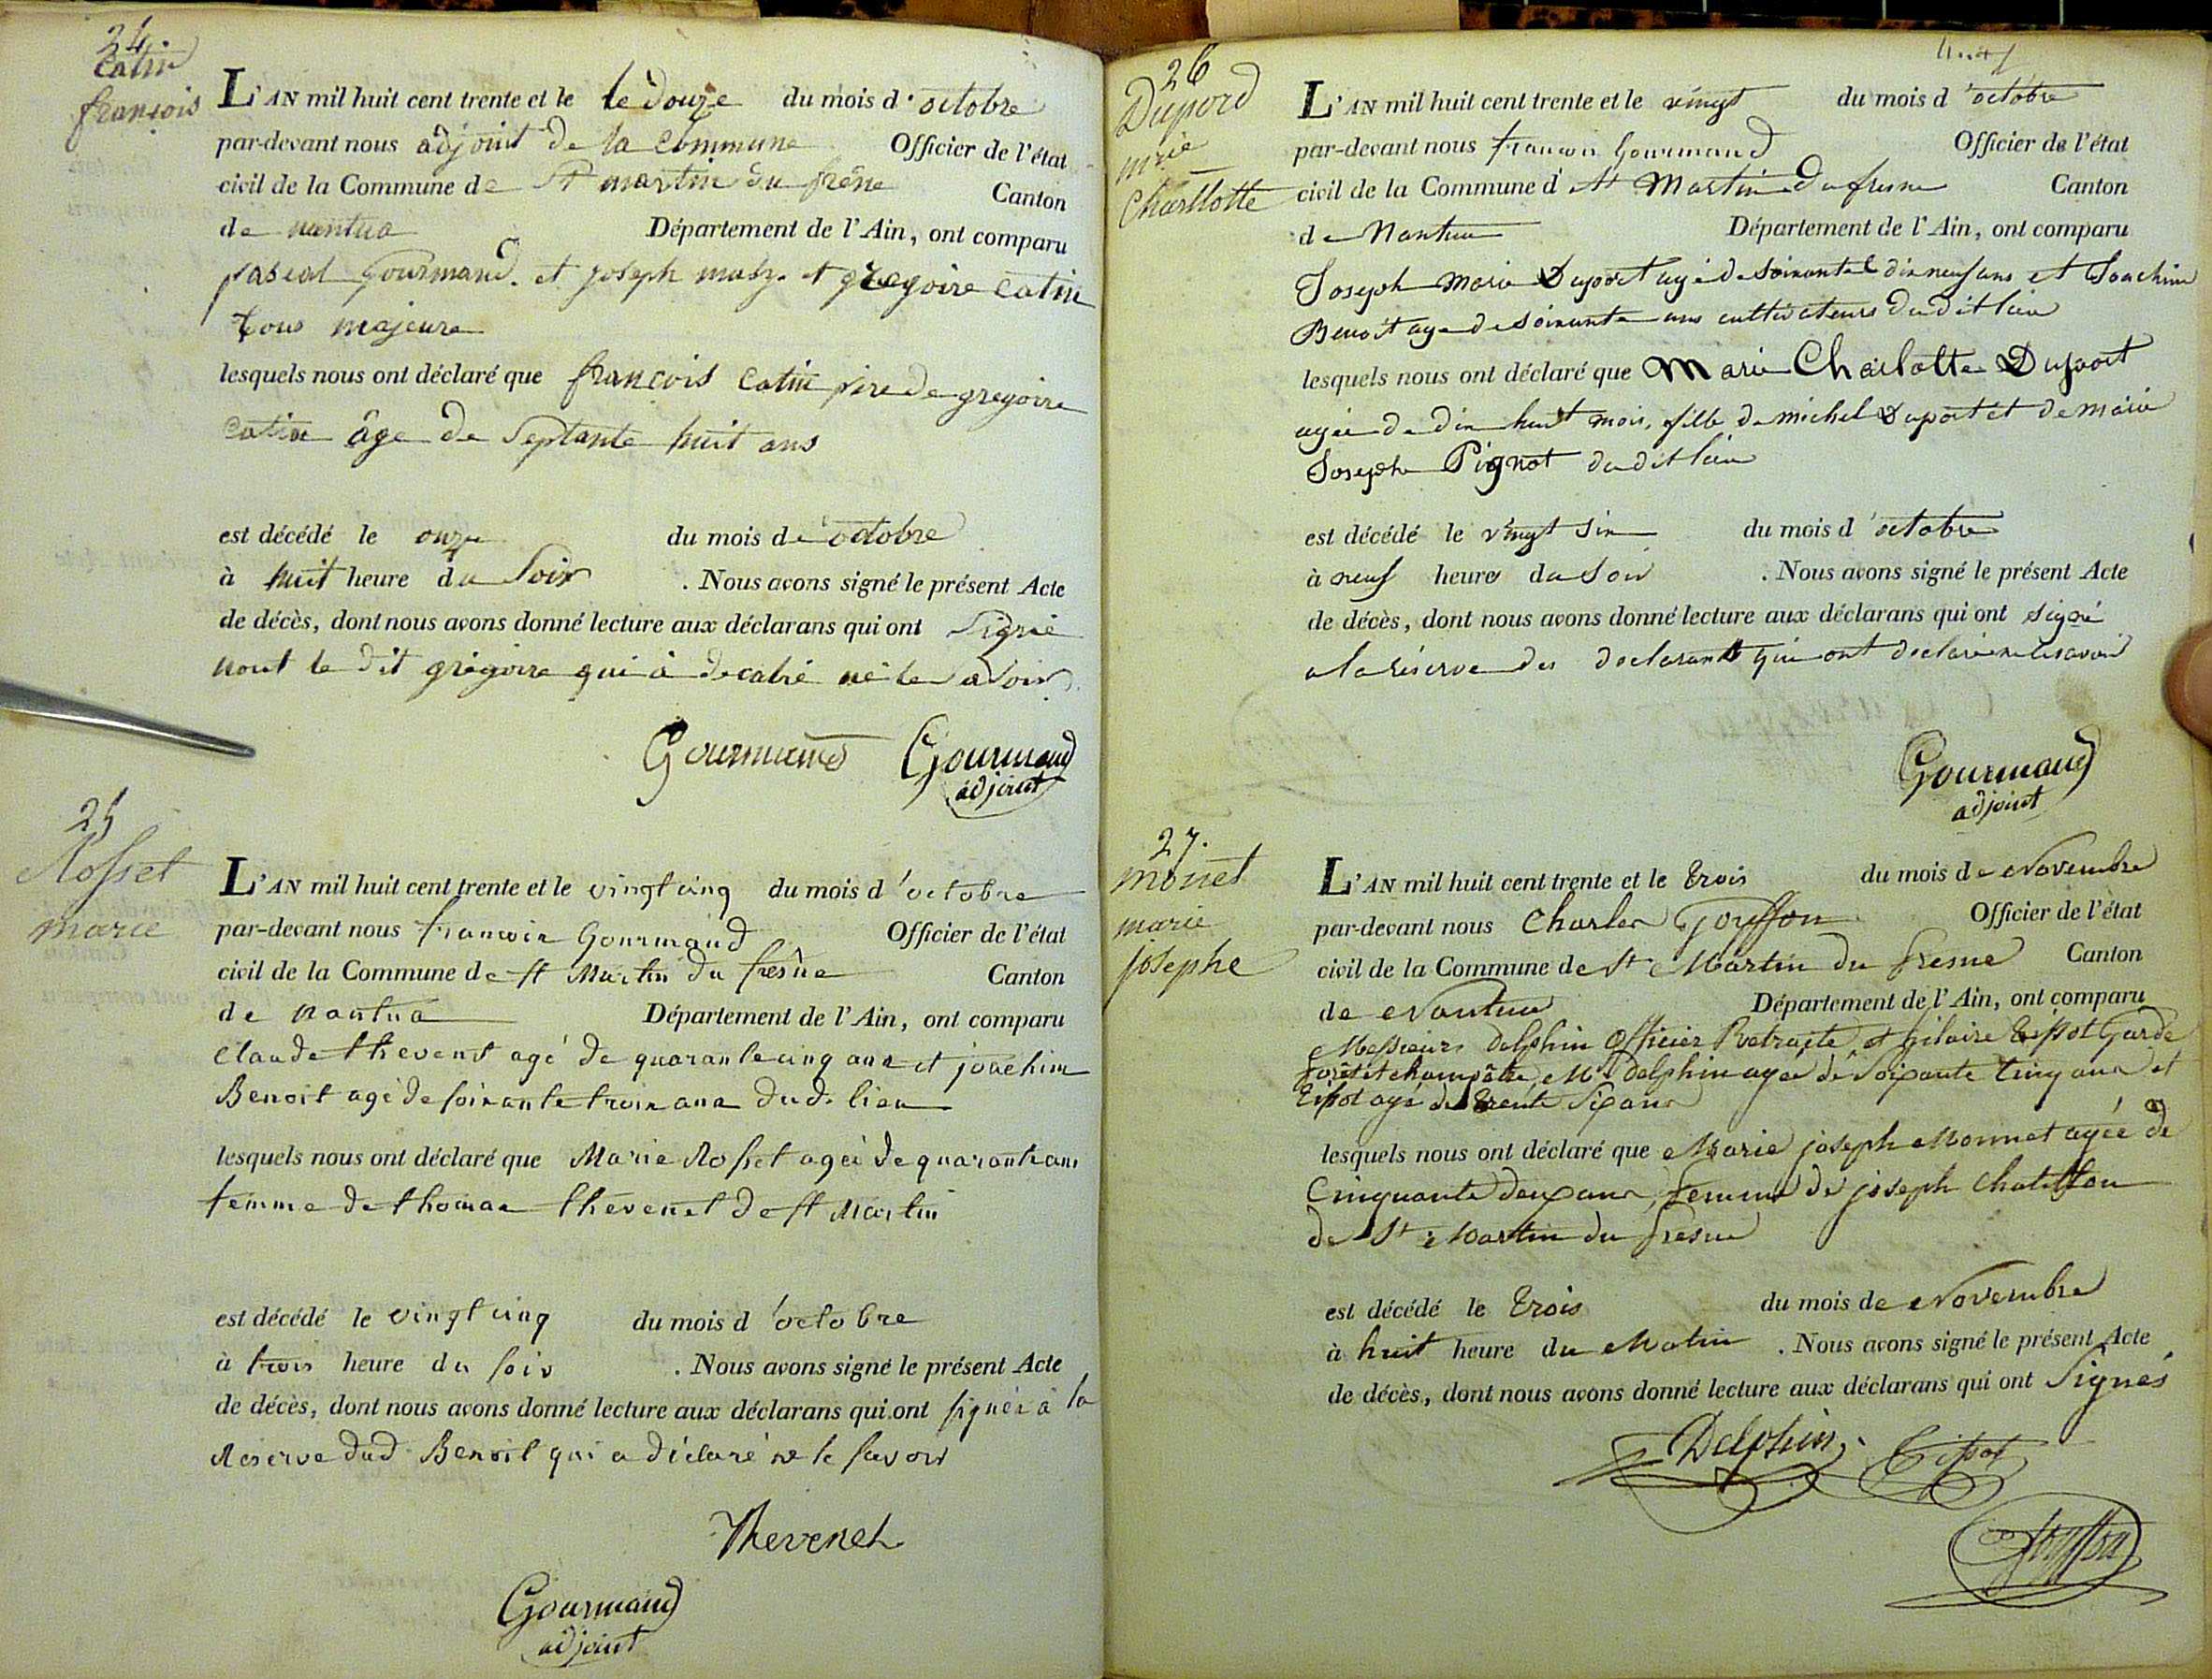 24
Catin
françois
L'AN mil huit cent trente et le le douze du mois d'octobre
par-devant nous adjoint de la Commune Officier de l'état
civil de la Commune de St martin du frêne Canton
de nantua Département de l'Ain, ont comparu
pascal Gourmand. et joseph et gregoire Catin
tous majeure
lesquels nous ont déclaré que françois Catin pire de gregoire
Catin âge de Septante huit ans
est décédé le onze du mois de octobre
à huit heure du Soir . Nous avons signé le présent Acte
de décès, dont nous avons donné lecture aux déclarans qui ont Signé
nont le dit grégoire qui à decalré né le savoir
Gourmand Gourmand
adjoint
25
Rosset
marie
L'AN mil huit cent trente et le vingt cinq du mois d'octobre
par-devant nous francois Gourmand Officier de l'état
civil de la Commune de st Martin du fresne Canton
de nantua Département de l'Ain, ont comparu
Claude thevenet agé de quarante cinq ans et joachim
Benoit agé de soixante trois ans dud. lieu
lesquels nous ont déclaré que Marie Rosset ageé de quarante ans
femme de thomas thevenet de st Martin
est décédé le vingt cinq du mois d'octobre
à trois heure du soir . Nous avons signé le présent Acte
de décès, dont nous avons donné lecture aux déclarans qui ont signés à la
Reserve dud. Benoit qui a déclaré ne le savoir
Thevenet
Gourmand
adjoint
26
Dupord
mrie
Charllotte
L'AN mil huit cent trente et le vingt du mois d'octobre
par-devant nous francois Gourmand Officier de l'état
civil de la Commune d st Martin du fresne Canton
de Nantua Département de l'Ain, ont comparu
Joseph Marie Duport agé de soixante dix neuf ans et Joachim
Benoit age de soixante ans cultivateurs du dit lieu
lesquels nous ont déclaré que Marie Charlotte Duport
agée de dix huit mois, fille de michel Duport et de marie
Josephe Pignot du dit lieu
est décédé le vingt six du mois d'octobre
à neuf heures du Soir . Nous avons signé le présent Acte
de décès, dont nous avons donné lecture aux déclarans qui ont signé
a la réserve des declarants qui ont declaré ne le savoir
Gourmand
adjoint
27.
monet
marie
josephe
L'AN mil huit cent trente et le trois du mois de Novembre
par-devant nous Charles Goyffon Officier de l'état
civil de la Commune de St Martin du fresne Canton
de Nantua Département de l'Ain, ont comparu
Messieurs Delphin Officier Retraité, et hilaire Tissot Garde
forêt et champêtre, Mr. Delphin agée de Soixante Cinq ans et
Tissot agé de trente Six ans
lesquels nous ont déclaré que Marie joseph Monnet agée de
Cinquante deux ans, femme de joseph Chatillon
de St Martin du fresne
est décédé le trois du mois de Novembre
à huit heure du Matin . Nous avons signé le présent Acte
de décès, dont nous avons donné lecture aux déclarans qui ont Signés
Delphin Tissot
Goyffon